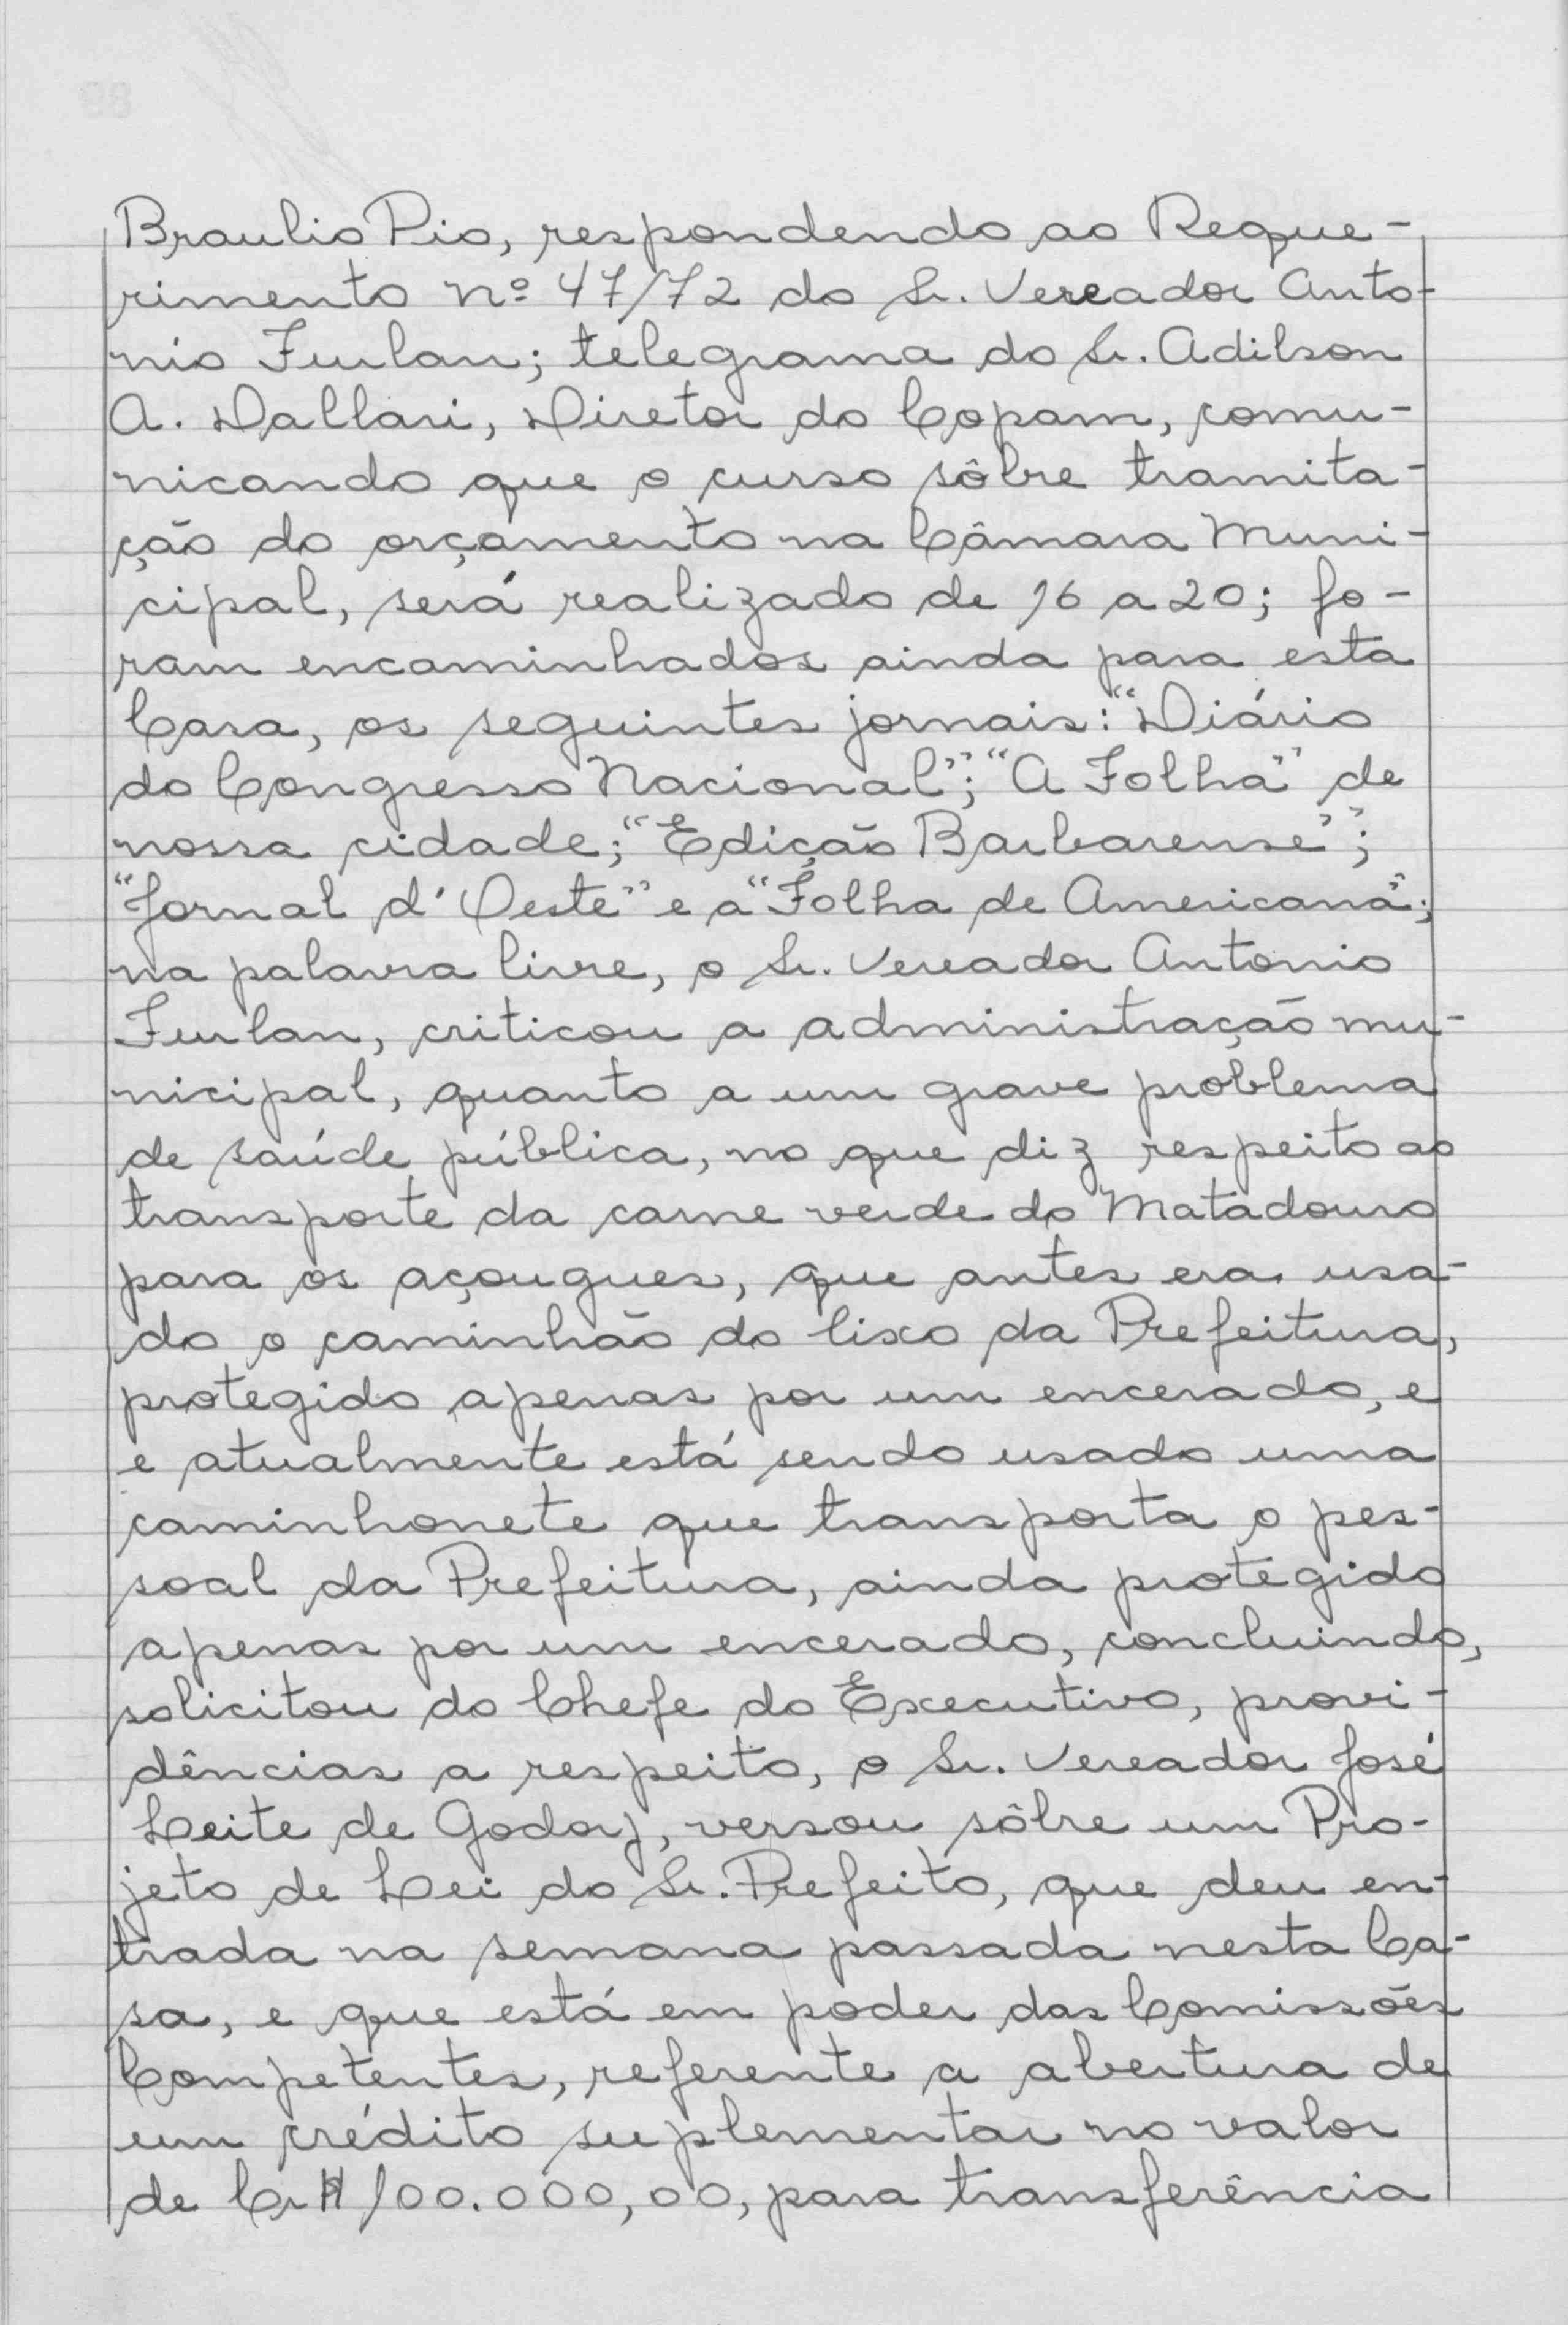 Braulio Pio, respondendo ao Reque-
rimento nº 47/72 do Sr. Vereador Anto-
nio Furlan; telegrama do Sr. Adilson
A. Dallari, Diretor do Copam, comu-
nicando que o curso sôbre tramita-
ção do orçamento na Câmara Muni-
cipal, será realizado de 16 a 20; fo-
ram encaminhados ainda para esta
Casa, os seguintes jornais: "Diário
do Congresso Nacional"; "A Folha" de
nossa cidade; "Edição Barbarense";
"Jornal d'Oeste" e a "Folha de Americana";
na palavra livre, o Sr. Vereador Antonio
Furlan, criticou a administração mu-
nicipal, quanto a um grave problema
de saúde pública, no que diz respeito ao
transporte da carne verde do Matadouro
para os açougues, que antes era usa-
do o caminhão do lixo da Prefeitura,
protegido apenas por um encerado, e
e atualmente está sendo usado uma
caminhonete que transporta o pes-
soal da Prefeitura, ainda protegido
apenas por um encerado, concluindo,
solicitou do Chefe do Executivo, provi-
dências a respeito, o Sr. Vereador José
Leite de Godoy, versou sôbre um Pro-
jeto de Lei do Sr. Prefeito, que deu en-
trada na semana passada nesta Ca-
sa, e que está em poder das Comissões
Competentes, referente a abertura de
um crédito suplementar no valor
de Cr$ 100.000,00, para transferência